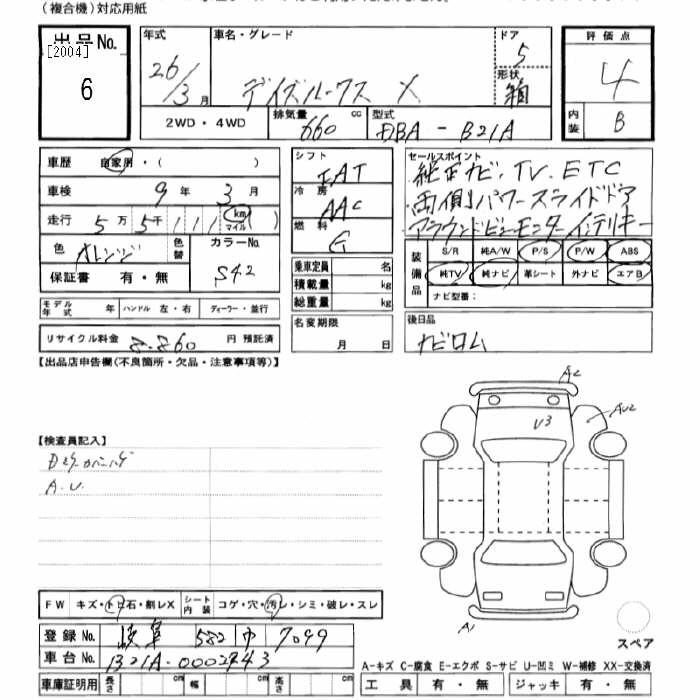 (複合機)対応用紙
出品No.
[2004]
6
年式
26/3月
車名・グレード
デイズルークス X
ドア
5
形状
箱
評価点
4
内装
B
2WD・4WD
排気量
660 cc
型式
DBA-B21A
車歴 自家用・( )
車検 9年 3月
走行 5万5千111 (km マイル)
色 オレンジ
色替
カラーNo.
S42
保証書 有・無
シフト
IAT
冷房
AAC
燃料
G
セールスポイント
純正ナビ、TV、ETC
両側パワースライドドア
アラウンドビューモニター インテリキー
装備品
S/R 純A/W P/S P/W ABS
純TV 純ナビ 革シート 外ナビ エアB
ナビ型番:
乗車定員 名
積載量 kg
総重量 kg
モデル年式 年 ハンドル 左・右 ディーラー・並行
リサイクル料金 8.860 円 預託済
名変期限
月 日
後日品
ナビロム
【出品店申告欄(不良箇所・欠品・注意事項等)】
A2
AU2
U3
A1
【検査員記入】
A.U.
FW キズ・トビ石・割レX シート内装 コゲ・穴・汚レ・シミ・破レ・スレ
登録No. 岐阜 582 7099
車台No. B21A-0002743
車庫証明用 長さ cm 幅 cm 高さ cm
スペア
A-キズ C-腐食 E-エクボ S-サビ U-凹ミ W-補修 XX-交換済
工具 有・無 ジャッキ 有・無